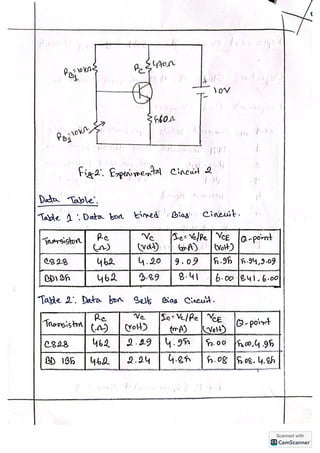 RB1=10kΩ
RC
470Ω
10V
RB2=10kΩ
560Ω
Fig-2: Experimental Circuit 2
Data Table:
Table 1: Data for fixed Bias Circuit.
Transistor RC (Ω) VC (volt) IC=VC/RC (mA) VCE (volt) Q-point
C828 462 4.20 9.09 5.95 5.95, 9.09
BD135 462 3.89 8.41 6.00 8.41, 6.00
Table 2: Data for Self Bias Circuit.
Transistor RC (Ω) VC (volt) IC=VC/RC (mA) VCE (volt) Q-point
C828 462 2.29 4.95 5.00 5.00, 4.95
BD 135 462 2.24 4.85 5.08 5.08, 4.85
Scanned with
CS CamScanner